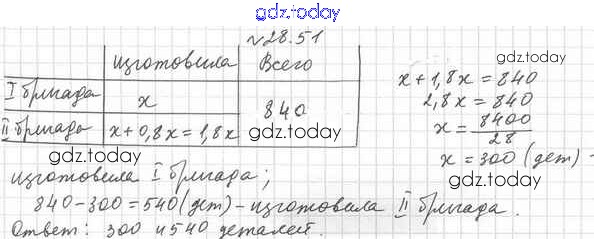 gdz.today
№28.51
изготовила Всего
I бригада x 840
II бригада x+0,8x=1,8x
gdz.today
gdz.today
gdz.today
x+1,8x=840
2,8x=840
x=8400/28
x=300 (дет) -
gdz.today
изготовила I бригада;
840-300=540(дет)-изготовила II бригада.
Ответ: 300 и 540 деталей.
gdz.today